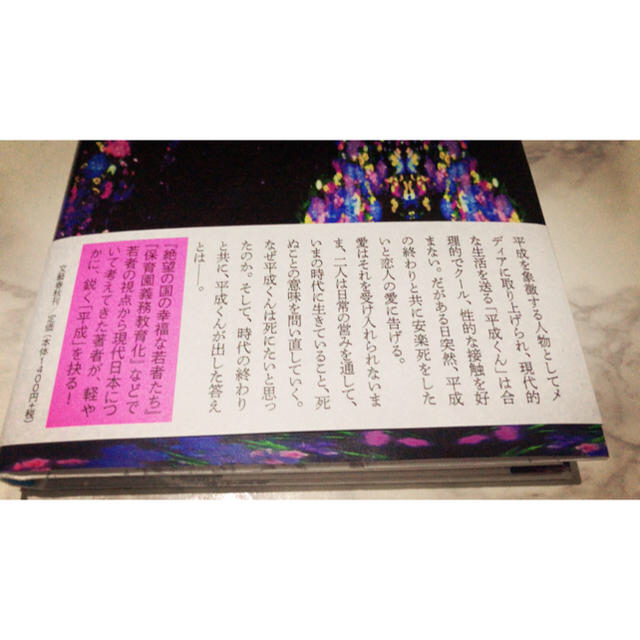 平成を象徴する人物としてメ
ディアに取り上げられ、現代的
な生活を送る「平成くん」は合
理的でクール、性的な接触を好
まない。だがある日突然、平成
の終わりと共に安楽死をした
いと恋人の愛に告げる。
愛はそれを受け入れられないま
ま、二人は日常の営みを通して、
いまの時代に生きていること、死
ぬことの意味を問い直していく。
なぜ平成くんは死にたいと思っ
たのか。そして、時代の終わり
と共に、平成くんが出した答え
とは——。
『絶望の国の幸福な若者たち』
『保育園義務教育化』などで
若者の視点から現代日本につ
いて考えてきた著者が、軽や
かに、鋭く「平成」を抉る！
文藝春秋刊 定価（本体1400円+税）